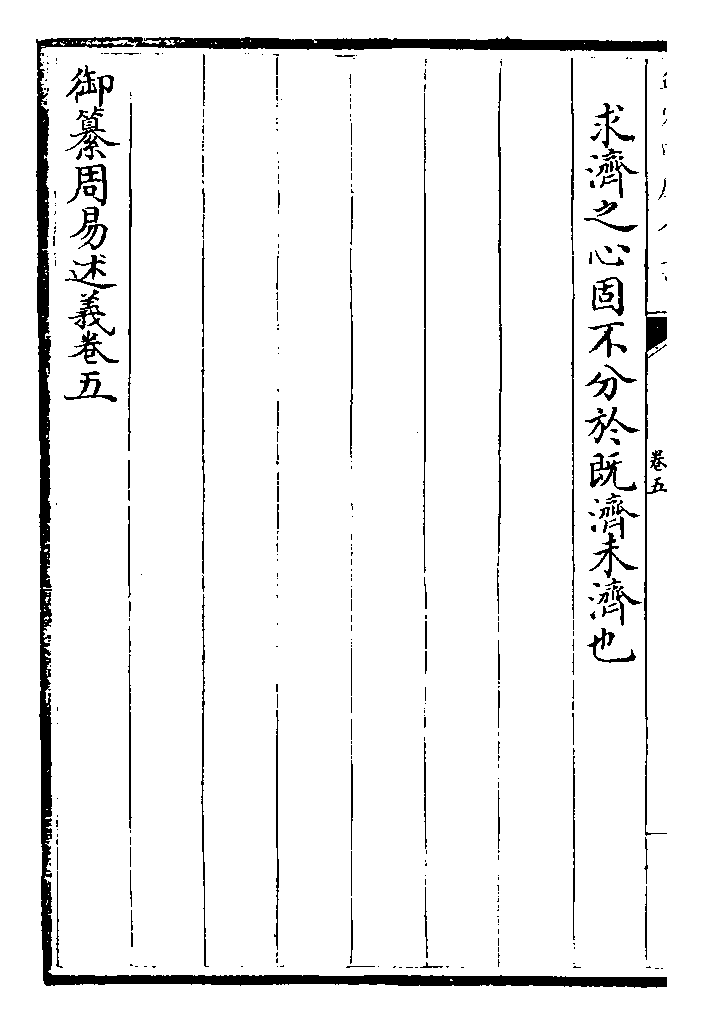 求濟之心固不分於既濟未濟也
御纂周易述義卷五
卷五